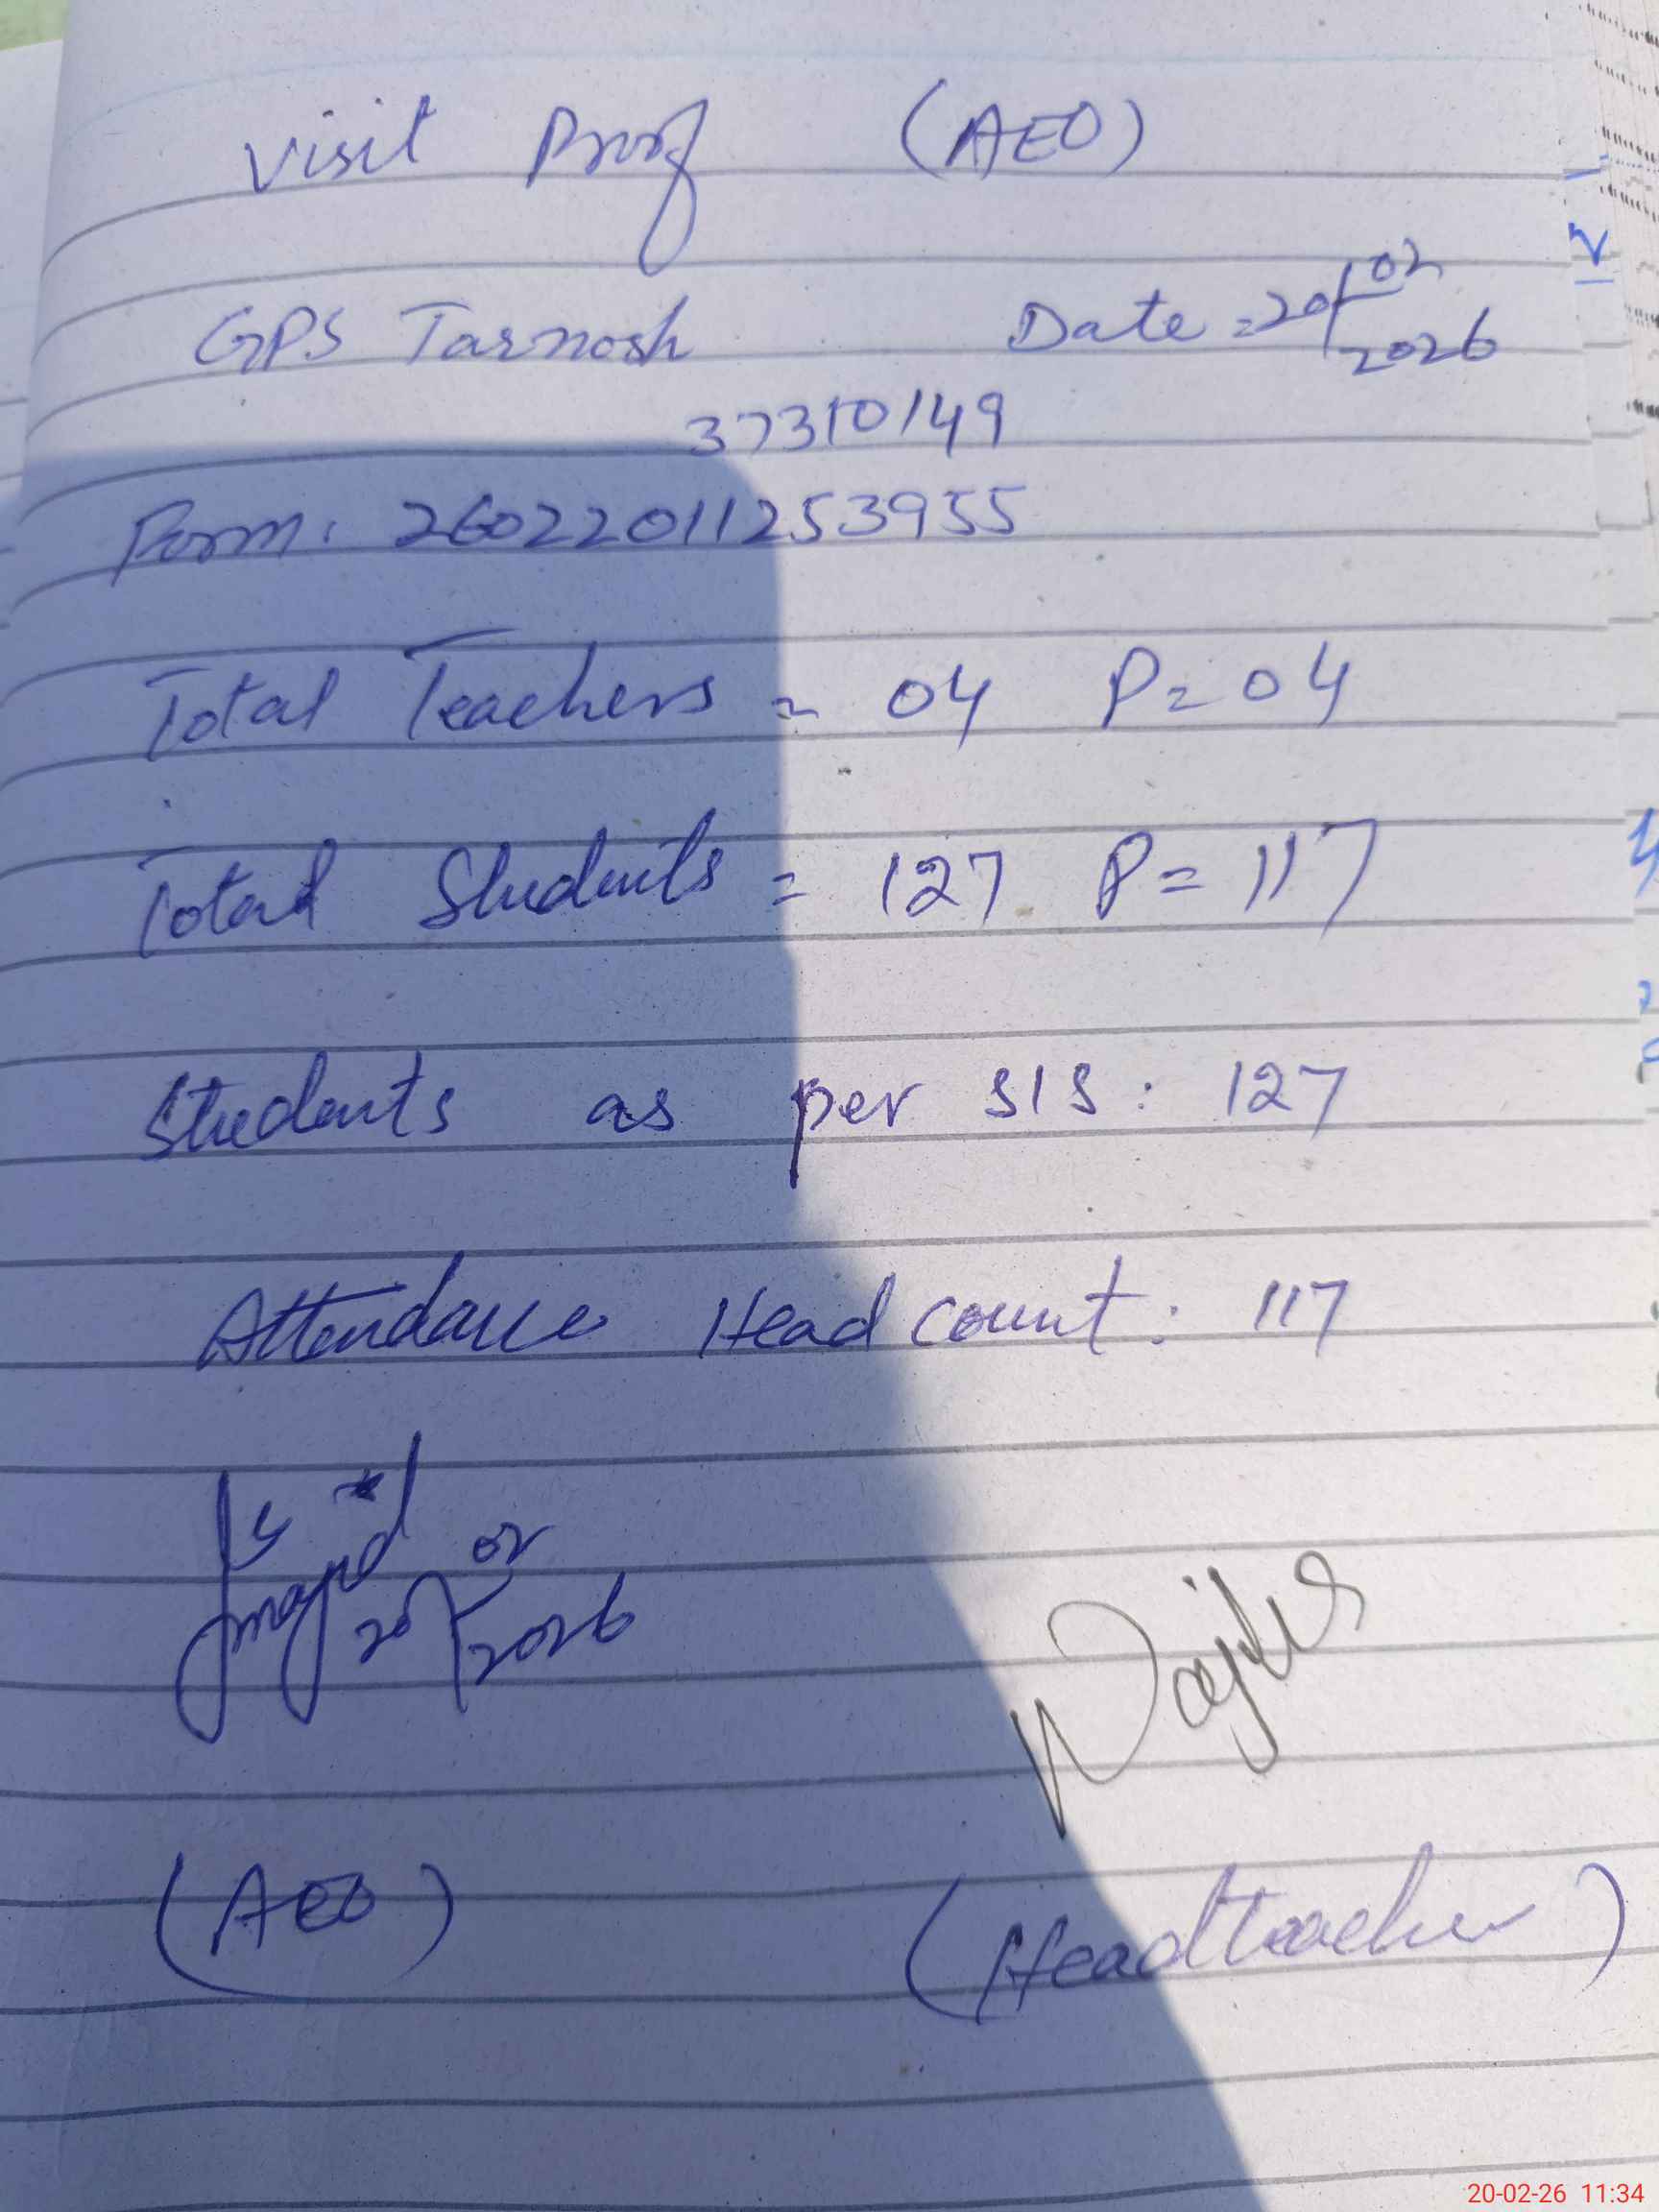 Visit Proof (AEO)
GPS Tarnosh Date = 20/02/2026
37310149
Form: 260220011253955
Total Teachers = 04 P = 04
Total Students = 127 P = 117
Students as per SIS: 127
Attendance Head count: 117
majid
20/02/2026
(AEO) (Headteacher)
20-02-26 11:34